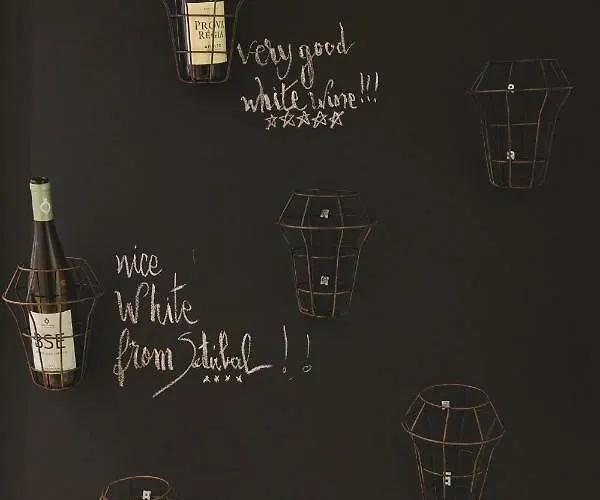 PROVA
RÉGIA
very good
white wine!!!
nice
White
from Setúbal !!
BSE